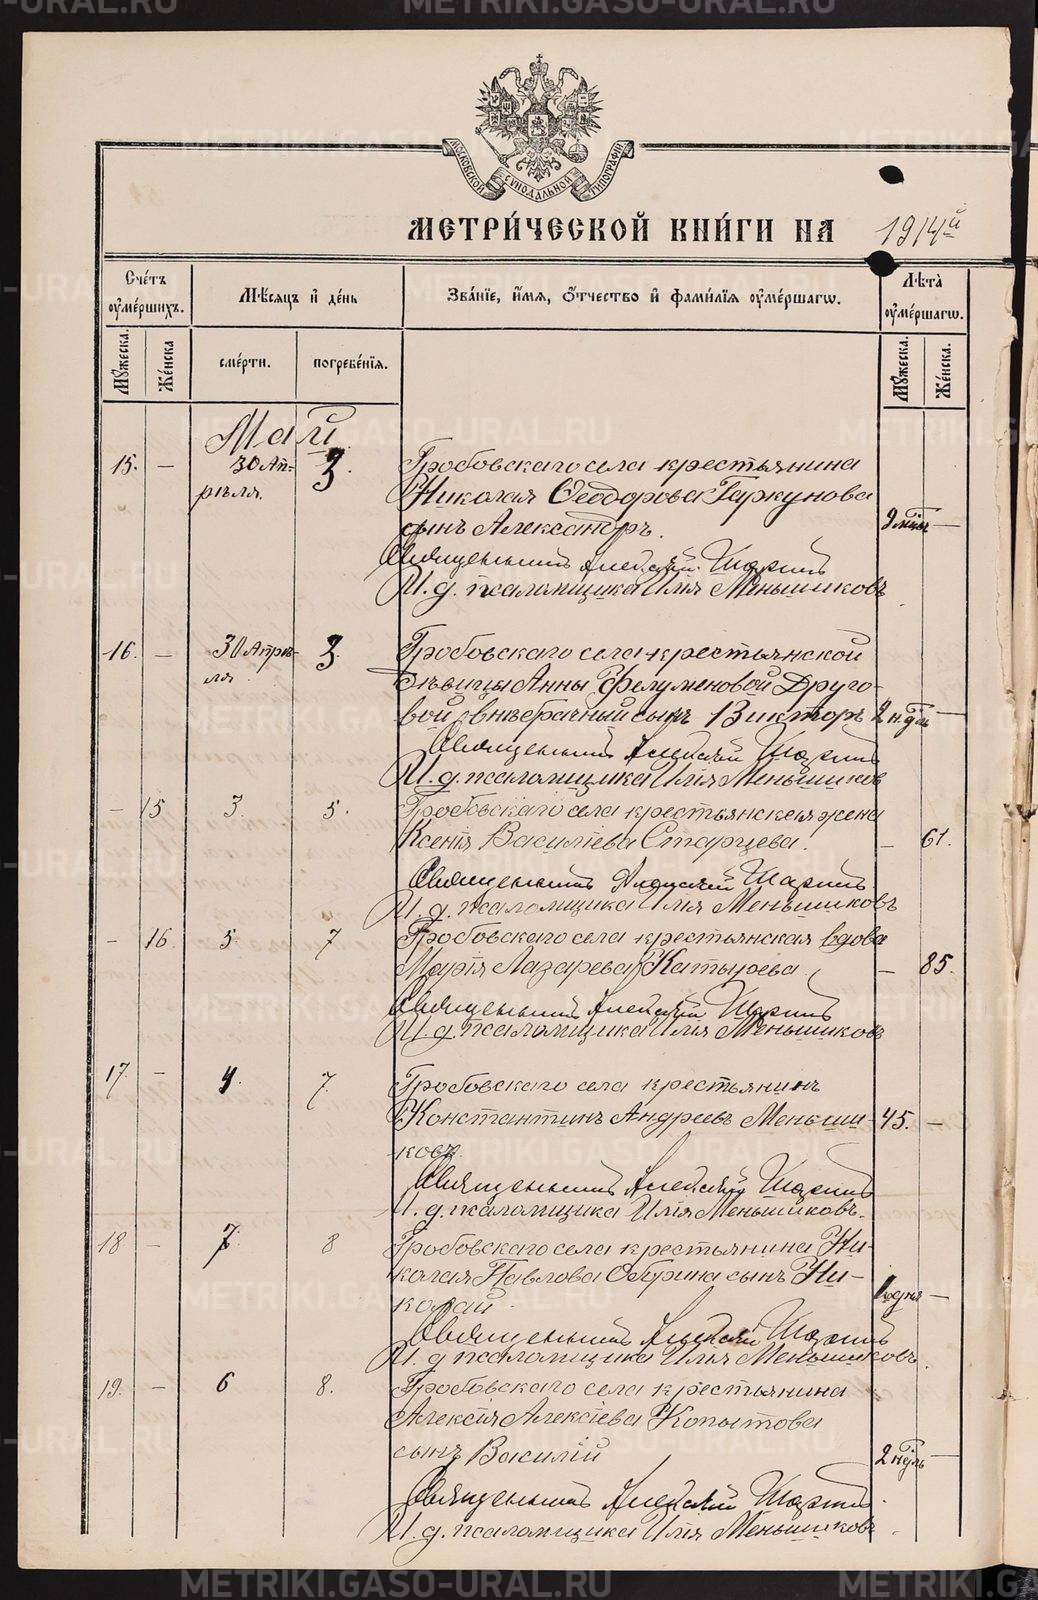 МОСКОВСКОЙ СѴНОДАЛЬНОЙ ТИПОГРАФІИ
МЕТРИ́ЧЕСКОЙ КНИ́ГИ НА 1914й
Счéтъ ᲂу҆мéршихъ.
Мѣ́сяцъ и҆ дéнь
Звáнїе, и҆́мя, ѻ҆́тчество и҆ фами́лїя ᲂу҆мéршагѡ.
Лѣтà ᲂу҆мéршагѡ.
Мꙋ́жеска.
Жéнска
смéрти.
погребéнїя.
Мꙋ́жеска.
Жéнска.
Май
15. — 30 Ап- 3. Гробовскаго села крестьянина
рѣля. Николая Ѳеодорова Гаркунова
сынъ Александръ. 9 мцы —
Священникъ Алексѣй
И. д. псаломщика Илія Меньшиковъ
16. — 30 Апрѣ- 3. Гробовскаго села крестьянской
ля дѣвицы Анны Филуменовой Друго-
вой, внѣбрачный сынъ Викторъ 2 нди —
Священникъ Алексѣй
И. д. псаломщика Илія Меньшиков
— 15 3. 5. Гробовскаго села крестьянская жена
Ксенія Василіева Старцева. — 61.
Священникъ Алексѣй
И. д. псаломщика Илія Меньшиковъ
— 16. 5 7 Гробовскаго села крестьянская вдова
Марія Лазарева Катырева — 85.
Священникъ Алексѣй
И. д. псаломщика Илія Меньшиковъ
17. — 4. 7. Гробовскаго села крестьянинъ
Константинъ Андреевъ Меньши- 45. —
ковъ.
Священникъ Алексѣй
И. д. псаломщика Илія Меньшиковъ.
18 — 7 8 Гробовскаго села крестьянина Ни-
колая Павлова Обрина сынъ Ни-
колай. —
Священникъ Алексѣй
И. д. псаломщика Илія Меньшиковъ.
19. — 6 8. Гробовскаго села крестьянина
Алексія Алексіева Копытова
сынъ Василій 2 —
Священникъ Алексѣй
И. д. псаломщика Илія Меньшиковъ
METRIKI.GASO-URAL.RU